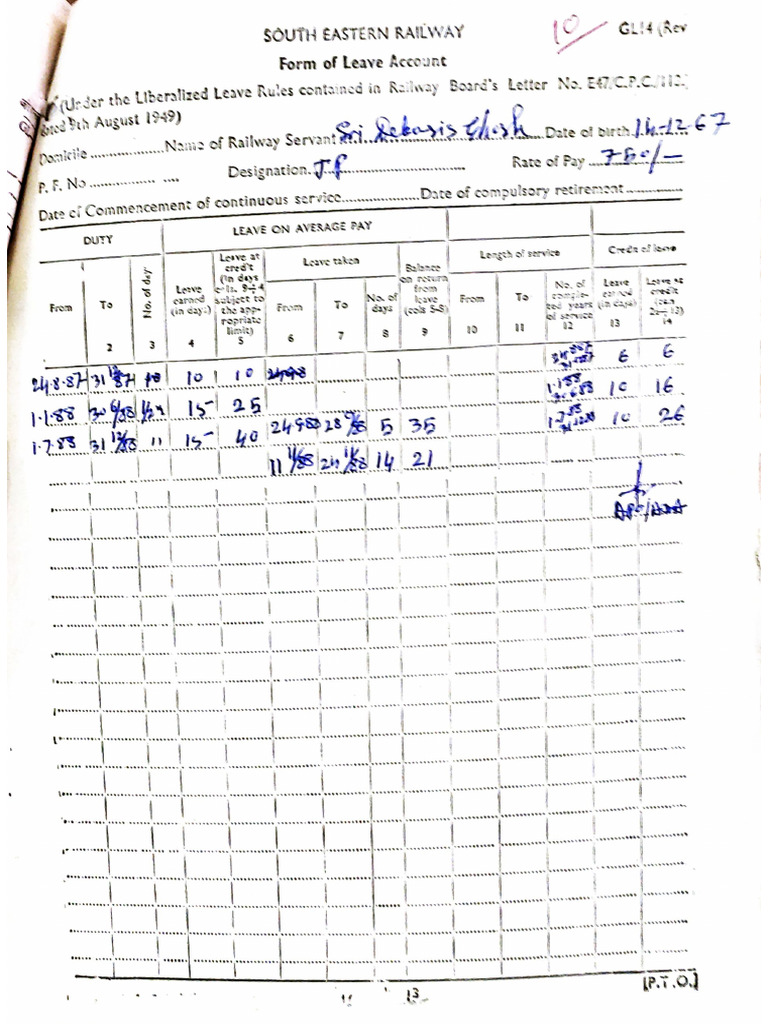 SOUTH EASTERN RAILWAY
10
GL14 (Rev
Form of Leave Account
(Under the Liberalized Leave Rules contained in Railway Board's Letter No. E47/C.P.C./112.
dated 9th August 1949)
Domicile .................. Name of Railway Servant Sri Debasis Ghosh Date of birth 14.12.67
P. F. No ................ .... Designation. JP Rate of Pay 750/-
Date of Commencement of continuous service.................... Date of compulsory retirement..............
DUTY LEAVE ON AVERAGE PAY
Leave at credit (in days cols. 9+4 subject to the appropriate limit) Leave taken Balance on return from leave (cols 5-8) Length of service Credit of leave
From To No. of day Leave earned (in days) From To No. of days From To No. of completed years of service Leave earned (in days) Leave at credit
2 3 4 5 6 7 8 9 10 11 12 13 14
24.8.87 31 12/87 10 10 6 6
1.1.88 30 6/88 1/2 15 25 1.1.88 10 16
1.7.88 31 12/88 11 15 40 24988 28 9/88 5 35 1.7.88 10 26
11 11/88 24 11/88 14 21
[P.T.O.]
13